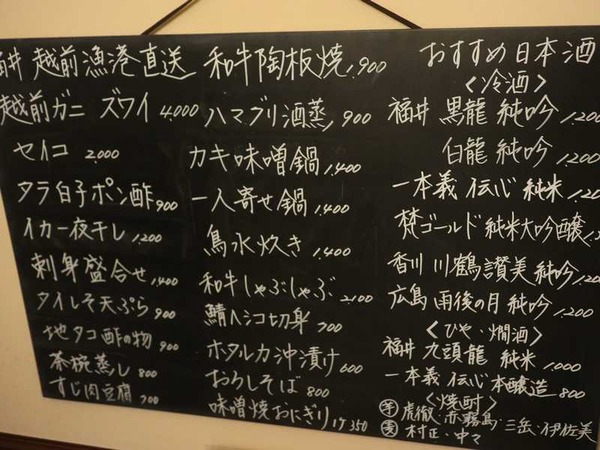 井 越前漁港直送
越前ガニ ズワイ 4,000
セイコ 2,000
タラ白子ポン酢 900
イカ一夜干し 1,200
刺身盛合せ 1,400
タイしそ天ぷら 900
地タコ酢の物 900
茶椀蒸し 800
すじ肉豆腐 700
和牛陶板焼 1,900
ハマグリ酒蒸 900
カキ味噌鍋 1,400
一人寄せ鍋 1,400
鳥水炊き 1,400
和牛しゃぶしゃぶ 2100
鯖ヘシコ切身 700
ホタルイカ沖漬け 600
おろしそば 800
味噌焼おにぎり 1ケ 350
おすすめ日本酒
〈冷酒〉
福井 黒龍 純吟 1,200
白龍 純吟 1,200
一本義 伝心 純米 1,20
梵ゴールド 純米大吟醸
香川 川鶴 讃美 純吟 1,20
広島 雨後の月 純吟 1,200
〈ひや・燗酒〉
福井 九頭龍 純米 1,000
一本義 伝心 本醸造 800
〈焼酎〉
芋 虎徹・赤霧島・三岳・伊佐美
麦 村正・中々